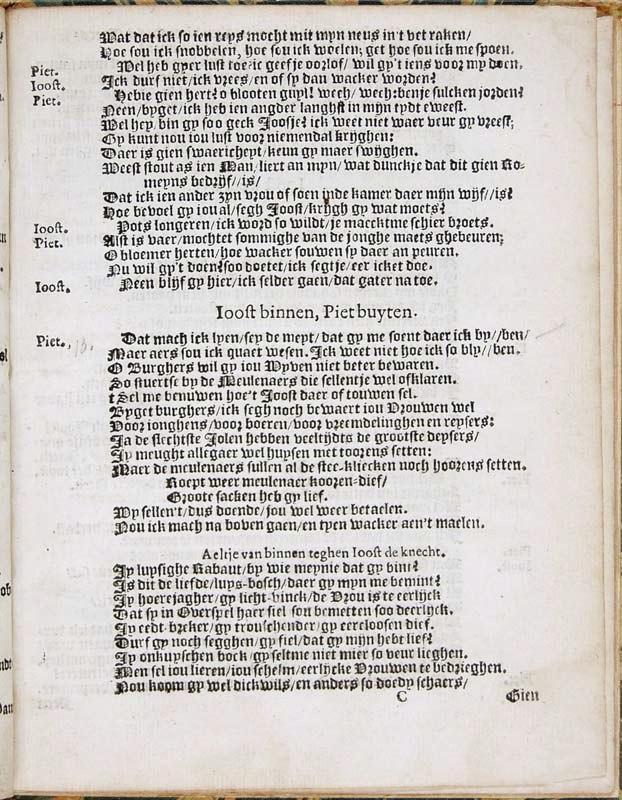 Wat dat ick so ien reys mocht mit myn neus in't vet raken/
Hoe sou ick snobbelen, hoe sou ick woelen; get hoe sou ick me spoen.
Piet. Wel heb gyer lust toe? ic geef je oorlof/ wil gy't iens voor my doen,
Ioost. Ick durf niet/ick vrees/en of sy dan wacker worden?
Piet. Hebje gien hert? o blooten guyl! wech/wech: benje sulcken jorden?
Neen/byget/ick heb ien angder langhst in mijn tydt eweest.
Wel hey/bin gy soo geck Joosje? ick weet niet waer veur gy vreest;
Gy kunt nou iou lust voor niemendal krijghen:
Daer is gien swaericheyt/keun gy maer swyghen.
Weest stout as ien Man/liert an myn/wat dunckje dat dit gien Ro-
meyns bedrijf//is/
Dat ick ien ander zyn vrou of soen inde kamer daer mijn wijf//is?
Hoe bevoel gy iou al/segh Joost/krijgh gy wat moets?
Ioost. Pots longeren/ick word so wildt/je maeckt me schier broets.
Piet. Alst is vaer/mochtet sommighe van de jonghe maets ghebeuren;
O bloemer herten/hoe wacker souwen sy daer an peuren.
Nu wil gy't doen? soo doetet/ick segtje/eer icket doe.
Ioost. Neen blijf gy hier/ick selder gaen/dat gater na toe.
Ioost binnen, Piet buyten.
Piet. Dat mach ick lyen/sey de meyt/dat gy me soent daer ick by//ben/
Maer aers sou ick quaet wesen. Ick weet niet hoe ick so bly//ben.
O Burghers wil gy iou Wyven niet beter bewaren.
So stuertse by de Meulenaers die sellentje wel ofklaren.
t Sel me benuwen hoe't Joost daer of touwen sel.
Byget burghers/ick segh noch bewaert iou Vrouwen wel
Voor jonghens/voor boeren/voor vreemdelinghen en reysers:
Ja de slechtste Jolen hebben veeltijdts de grootste deysers/
Jy meught allegaer wel huysen met toorens setten:
Maer de meulenaers sullen al de stee-kliecken noch hoorens setten.
Roept weer meulenaer kooren-dief/
Groote sacken heb gy lief.
Wy sellen't/dus doende/jou wel weer betaelen.
Nou ick mach na boven gaen/en tyen wacker aen't maelen.
Aeltje van binnen teghen Ioost de knecht.
Jy lupsighe Rabaut/by wie meynie dat gy bint?
Is dit de liefde/lupsbosch/daer gy myn me bemint?
Jy hoerejagher/gy licht-vinck/de Vrou is te eerlijck
Dat sy in Overspel haer siel sou bemetten soo deerlijck.
Jy eedt-breker/gy trouschender/gy eereloosen dief.
Durf gy noch segghen/gy fiel/dat gy mijn hebt lief?
Jy onkuyschen bock/gy selt me niet mier so veur lieghen.
Men sel iou lieren/iou schelm/eerlijcke Vrouwen te bedrieghen.
Nou koom gy wel dickwils/en anders so doedy schaers/
C Gien